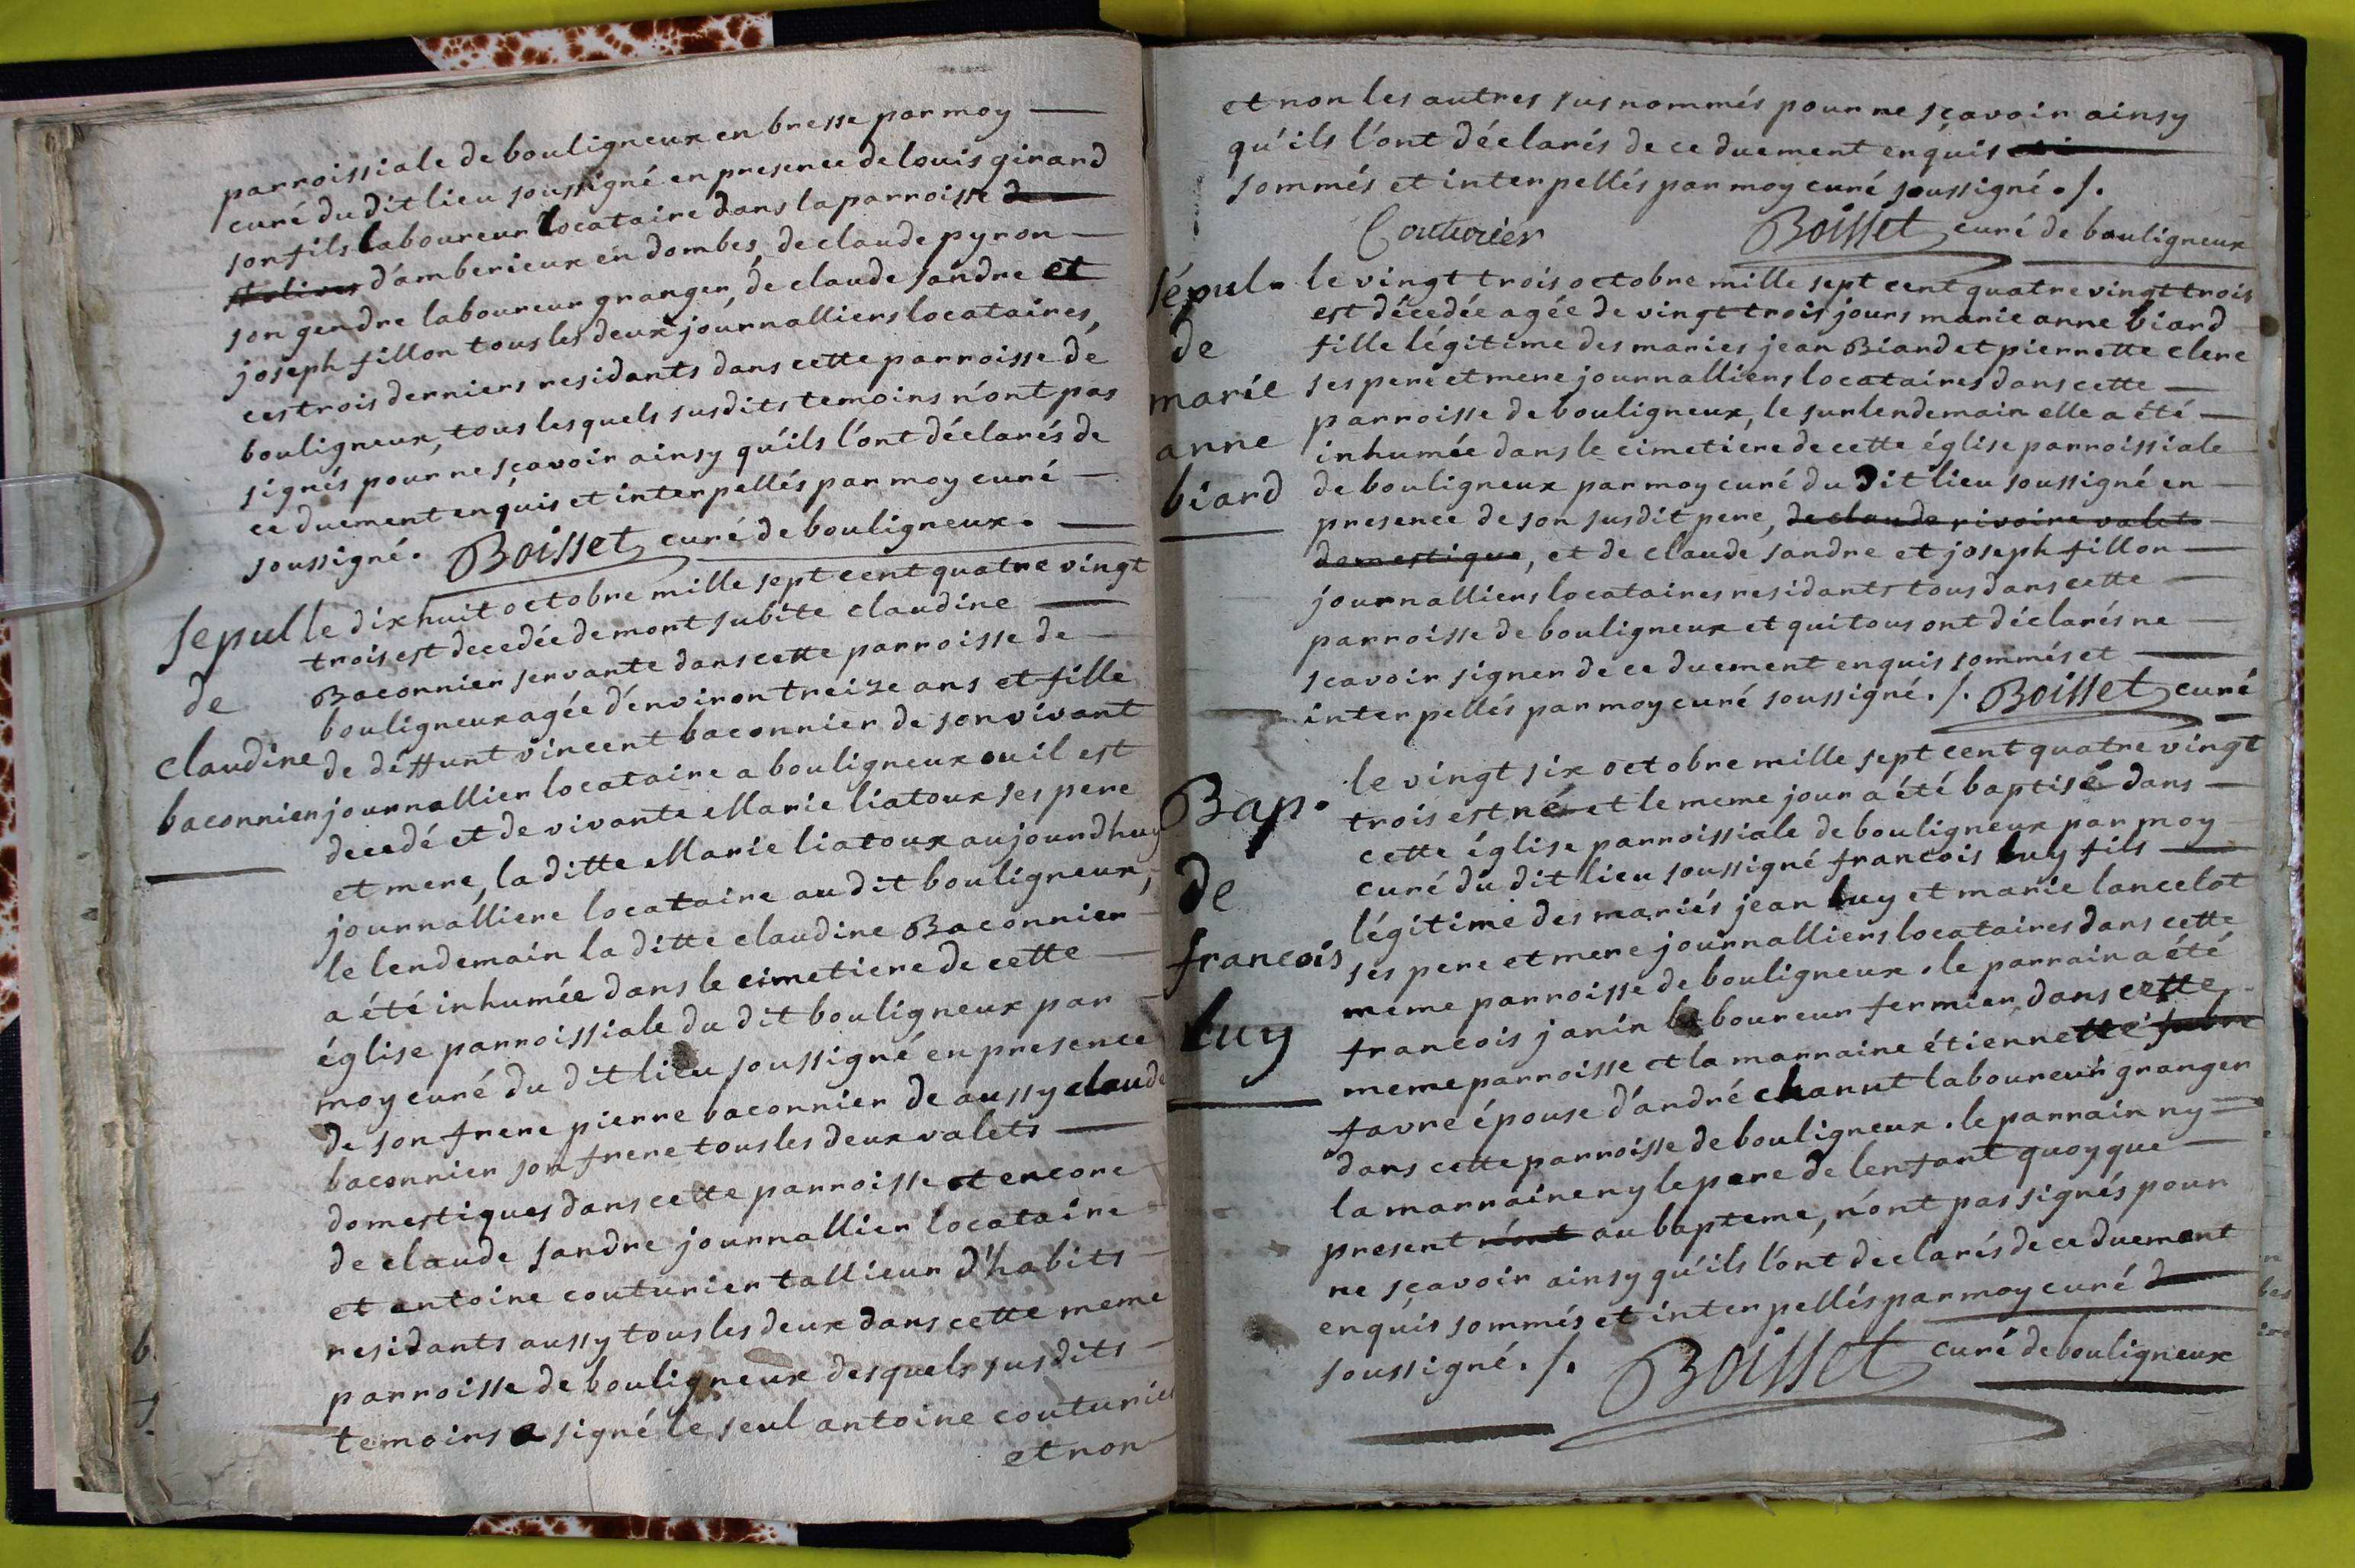 parroissiale de bouligneux en bresse par moy
curé du dit lieu soussigné en presence de louis girard
son fils laboureur locataire dans la parroisse de
st olives d'amberieux en dombes, de claude pyron
son gendre laboureur granger, de claude sandre et
joseph fillon tous les deux journalliers locataires,
ces trois derniers residants dans cette parroisse de
bouligneux, tous lesquels susdits temoins n'ont pas
signés pour ne sçavoir ainsy qu'ils l'ont déclarés de
ce duement enquis et interpellés par moy curé
soussigné. Boisset curé de bouligneux.
sepul
de
claudine
baconnier
le dix huit octobre mille sept cent quatre vingt
trois est decedée de mort subite claudine
Baconnier servante dans cette parroisse de
bouligneux agée d'environ treize ans et fille
de deffunt vincent baconnier de son vivant
journallier locataire a bouligneux ou il est
decedé et de vivante Marie liatoux ses pere
et mere, la ditte Marie liatoux aujourdhuy
journalliere locataire au dit bouligneux,
le lendemain la ditte claudine Baconnier
a été inhumée dans le cimetiere de cette
église parroissiale du dit bouligneux par
moy curé du dit lieu soussigné en presence
de son frere pierre baconnier de aussy claude
baconnier son frere tous les deux valets
domestiques dans cette parroisse et encore
de claude sandre journallier locataire
et antoine couturier tallieur d'habits
residants aussy tous les deux dans cette meme
parroisse de bouligneux desquels susdits
temoins a signé le seul antoine couturier
et non
et non les autres sus nommés pour ne sçavoir ainsy
qu'ils l'ont déclarés de ce duement enquis
sommés et interpellés par moy curé soussigné ./.
Couturier Boisset curé de bouligneux
sépul.
de
marie
anne
biard
le vingt trois octobre mille sept cent quatre vingt trois
est décedée agée de vingt trois jours marie anne biard
fille légitime des maries jean Biard et pierrette clere
ses pere et mere journalliers locataires dans cette
parroisse de bouligneux, le surlendemain elle a été
inhumée dans le cimetiere de cette église parroissiale
de bouligneux par moy curé du dit lieu soussigné en
presence de son susdit pere, de claude rivoire valet
domestique, et de claude sandre et joseph fillon
journalliers locataires residants tous dans cette
parroisse de bouligneux et qui tous ont déclarés ne
scavoir signer de ce duement enquis sommés et
interpellés par moy curé soussigné ./. Boisset curé
Bap.
de
francois
luy
le vingt six octobre mille sept cent quatre vingt
trois est né et le meme jour a été baptisé dans
cette église parroissiale de bouligneux par moy
curé du dit lieu soussigné francois luy fils
légitime des mariés jean luy et marie lancelot
ses pere et mere journalliers locataires dans cette
meme parroisse de bouligneux. le parrain a été
francois janin laboureur fermier dans cette
meme parroisse et la marraine étiennette fabre
favre épouse d'andré chanut laboureur granger
dans cette parroisse de bouligneux. le parrain ny
la marraine ny le pere de lenfant quoyque
present n'ont au bapteme, n'ont pas signés pour
ne sçavoir ainsy qu'ils l'ont declarés de ce duement
enquis sommés et interpellés par moy curé
soussigné ./. Boisset curé de bouligneux